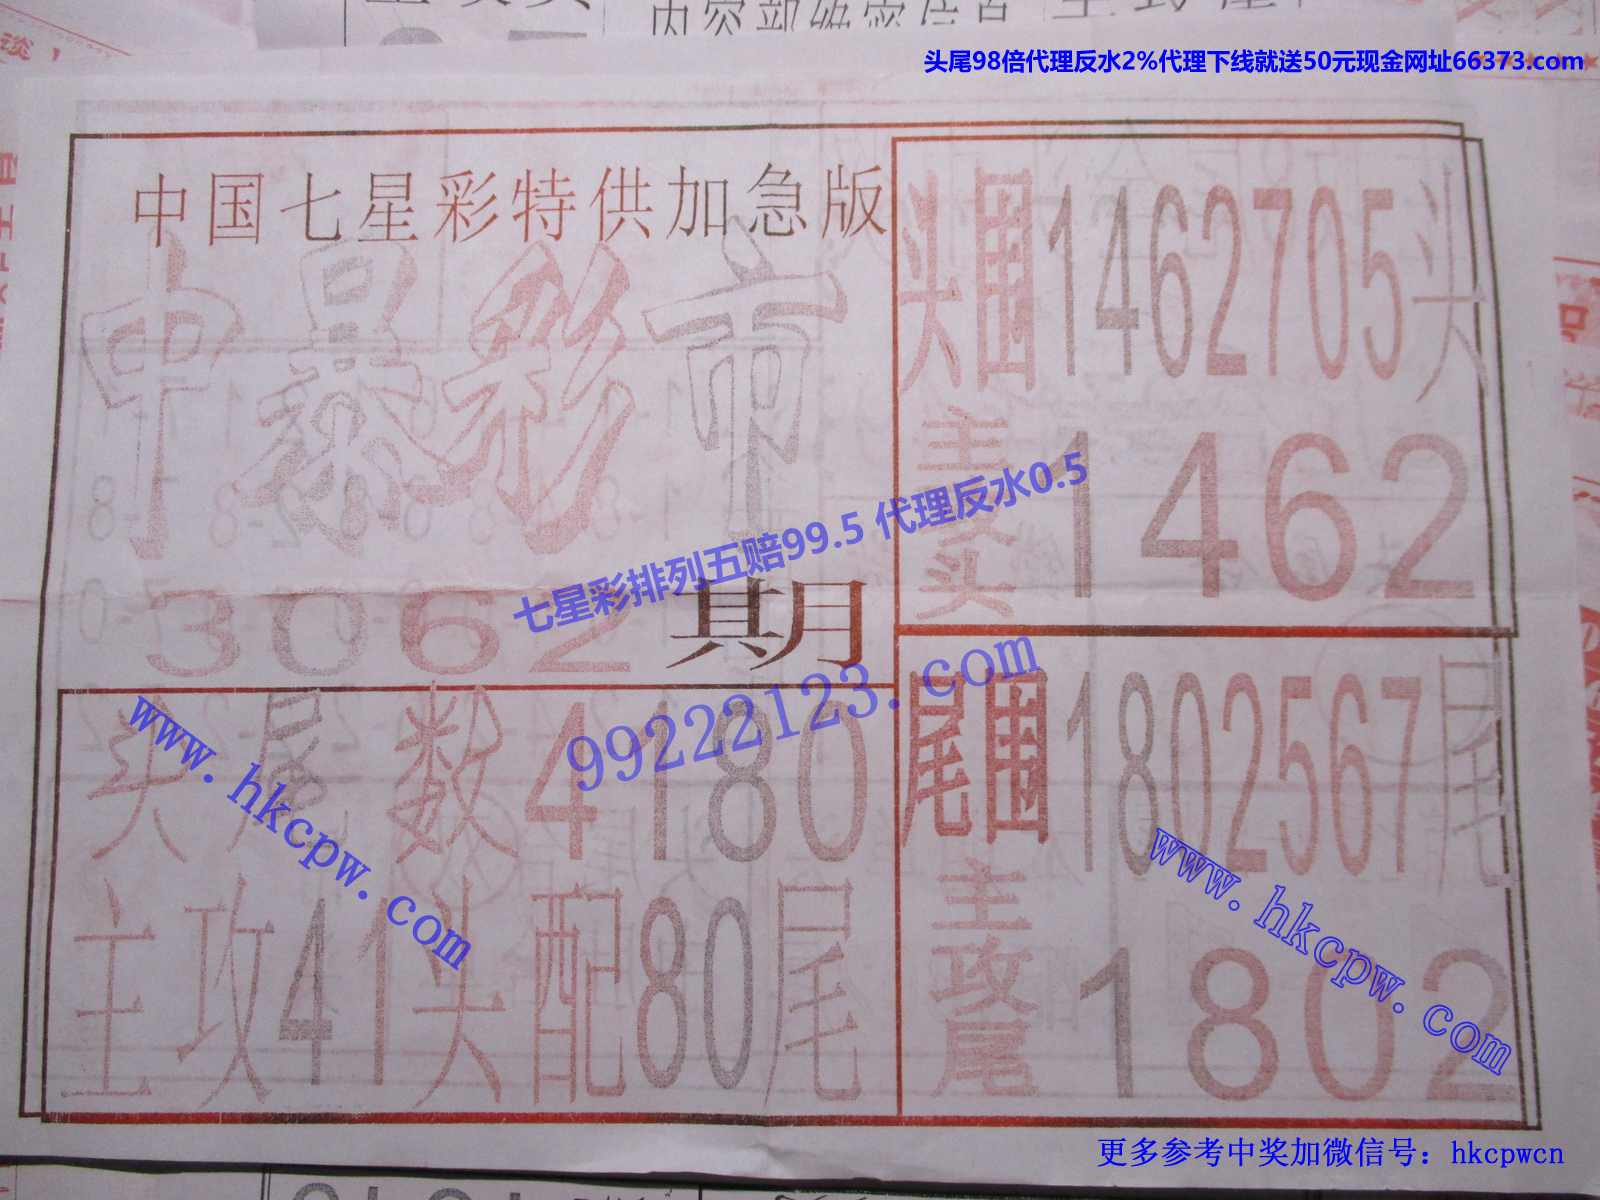 头尾98倍代理反水2%代理下线就送50元现金网址66373.com
中国七星彩特供加急版
中暴彩市
3062期
头围1462705头
主攻头1462
七星彩排列五赔99.5 代理反水0.5
99222123.com
头尾数4180
主攻41头配80尾
尾围1802567尾
主攻尾1802
www.hkcpw.com
www.hkcpw.com
更多参考中奖加微信号：hkcpwcn